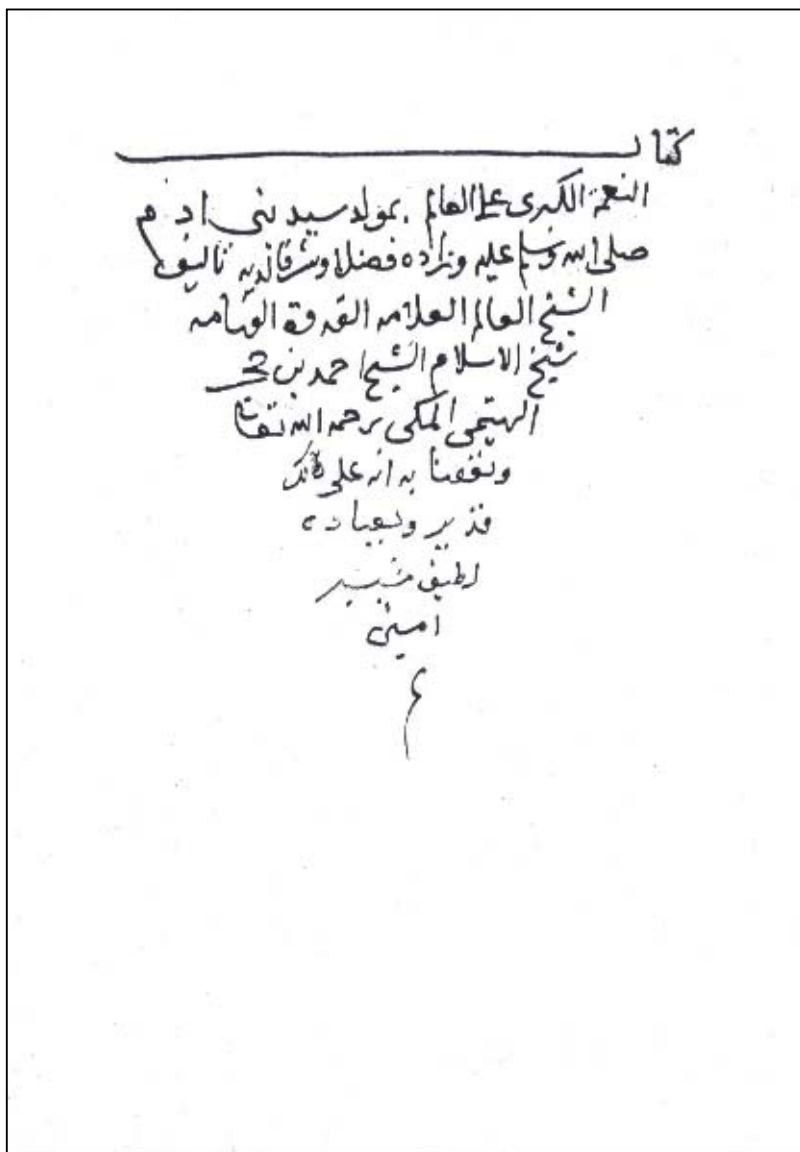 كتاب
النعمة الكبرى على العالم بمولد سيد بني ادم
صلى الله وسلم عليه وزاده فضلا وشرفا لديه تاليف
الشيخ العالم العلامه القدوة الفهامه
شيخ الاسلام الشيخ احمد بن حجر
الهيتمي المكي رحمه الله تعالى
ونفعنا به انه على ذلك
قدير وبعباده
لطيف خبير
امين
م